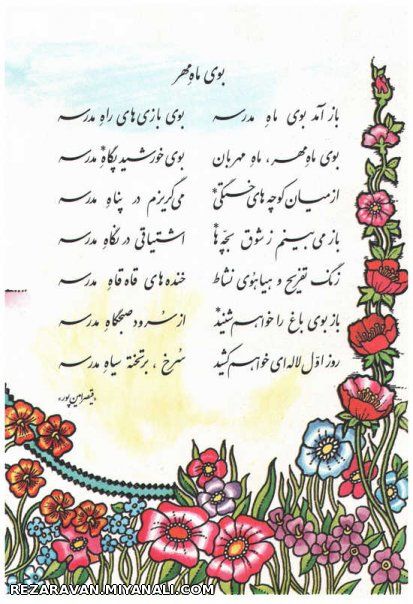 بوی ماهِ مهر
باز آمد بوی ماه مدرسه بوی بازی های راه مدرسه
بوی ماهِ مهر، ماه مهربان بوی خورشید پگاه* مدرسه
از میان کوچه های خستگی* می گریزم در پناه مدرسه
باز می بینم ز شوق بچّه ها* اشتیاقی در نگاه مدرسه
زنگ تفریح و هیاهوی نشاط خنده های قاه قاهِ مدرسه
باز بوی باغ را خواهم شنید* از سرود صبحگاه مدرسه
روز اوّل لاله ای خواهم کشید سرخ ، بر تخته سیاهِ مدرسه
«قیصر امین پور»
REZARAVAN.MIYANALI.COM